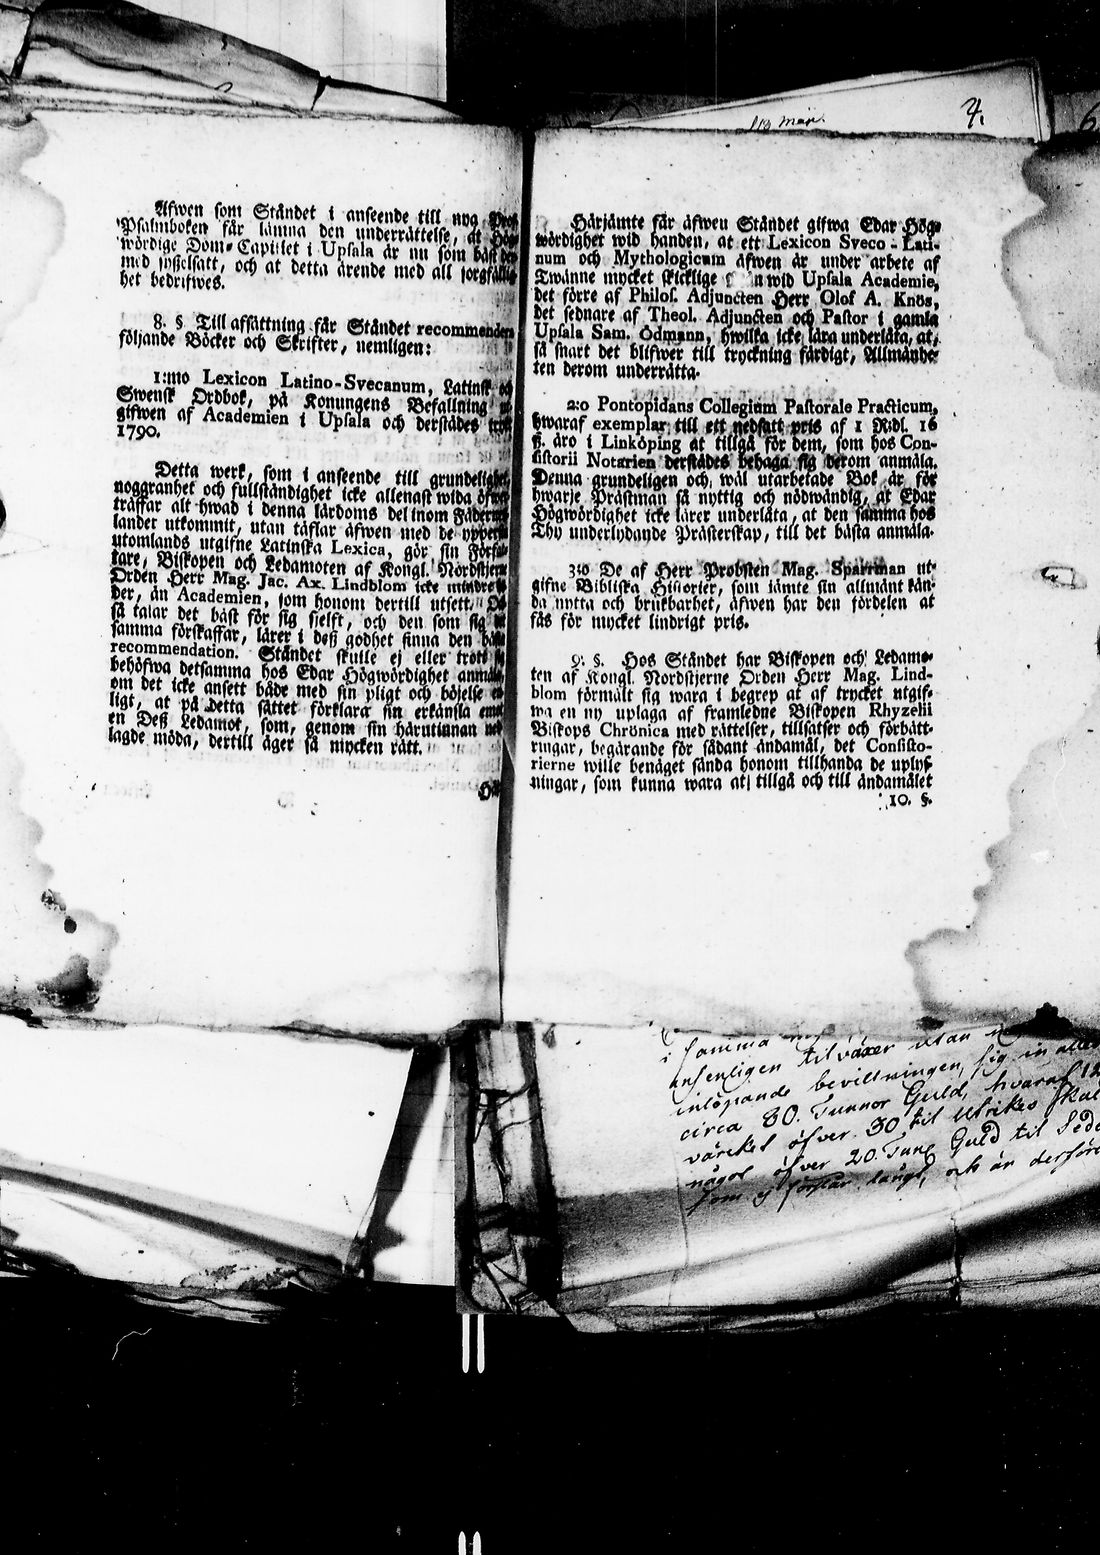 Äfwen som Ståndet i anseende till nya
Psalmboken får lämna den underrättelse, at
wördige Dom-Capitlet i Upsala är nu som bäst
med sysselsatt, och at detta ärende med all sorgfällig
het bedrifwes.
8. §. Till afsättning får Ståndet recommendera
följande Böcker och Skrifter, nemligen:
1:mo Lexicon Latino-Svecanum, Latinsk och
Swensk Ordbok, på Konungens Befallning
gifwen af Academien i Upsala och derstädes
1790.
Detta werk, som i anseende till grundelighet,
noggranhet och fullständighet icke allenast wida
träffar alt hwad i denna lärdoms del inom
lander utkommit, utan täflar äfwen med de
utomlands utgifne Latinska Lexica, gör sin
tare, Biskopen och Ledamoten af Kongl. Nordstjerne
Orden Herr Mag. Jac. Ax. Lindblom icke mindre
der, än Academien, som honom dertill utsett.
så talar det bäst för sig sjelft, och den som sig
samma förskaffar, lärer i deß godhet finna den
recommendation. Ståndet skulle ej eller trott
behöfwa detsamma hos Edar Högwördighet
om det icke ansett både med sin pligt och böjelse
ligt, at på detta sättet förklara sin erkänsla
en Deß Ledamot, som, genom sin härutinnan
lagde möda, dertill äger så mycken rätt.
Här
113 mär.
4.
6
Härjämte får äfwen Ståndet gifwa Edar Hög-
wördighet wid handen, at ett Lexicon Sveco-Lati-
num och Mythologicum äfwen är under arbete af
Twänne mycket skicklige wid Upsala Academie,
det förre af Philos. Adjuncten Herr Olof A. Knös,
det sednare af Theol. Adjuncten och Pastor i gamla
Upsala Sam. Ödmann, hwilka icke lära underlåta, at,
så snart det blifwer till tryckning färdigt, Allmänhe-
ten derom underrätta.
2:o Pontopidans Collegium Pastorale Practicum,
hwaraf exemplar till ett nedsatt pris af 1 R:dl. 16
ß. äro i Linköping at tillgå för dem, som hos Con-
sistorii Notarien derstädes behaga sig derom anmäla.
Denna grundeligen och wäl utarbetade Bok är för
hwarje Prästman så nyttig och nödwändig, at Edar
Högwördighet icke lärer underlåta, at den samma hos
Thy underlydande Prästerskap, till det bästa anmäla.
3:o De af Herr Probsten Mag. Sparrman ut-
gifne Bibliska Historier, som jämte sin allmänt kän-
da nytta och brukbarhet, äfwen har den fördelen at
fås för mycket lindrigt pris.
9. §. Hos Ståndet har Biskopen och Ledamo-
ten af Kongl. Nordstjerne Orden Herr Mag. Lind-
blom förmält sig wara i begrep at af trycket utgif-
wa en ny uplaga af framledne Biskopen Rhyzelii
Biskops Chrönica med rättelser, tillsatser och förbätt-
ringar, begärande för sådant ändamål, det Consisto-
rierne wille benäget sända honom tillhanda de uplys-
ningar, som kunna wara at tillgå och till ändamålet
10. §.
i samma
ansenligen tilväxer utan
inlöpande bevillningen, sig in alles
circa 80. Tunnor Guld, hvaraf 12
värcket öfver 30 til Utrikes
något öfver 20. Tun: Guld til
som ej förslår långt, och än derföre